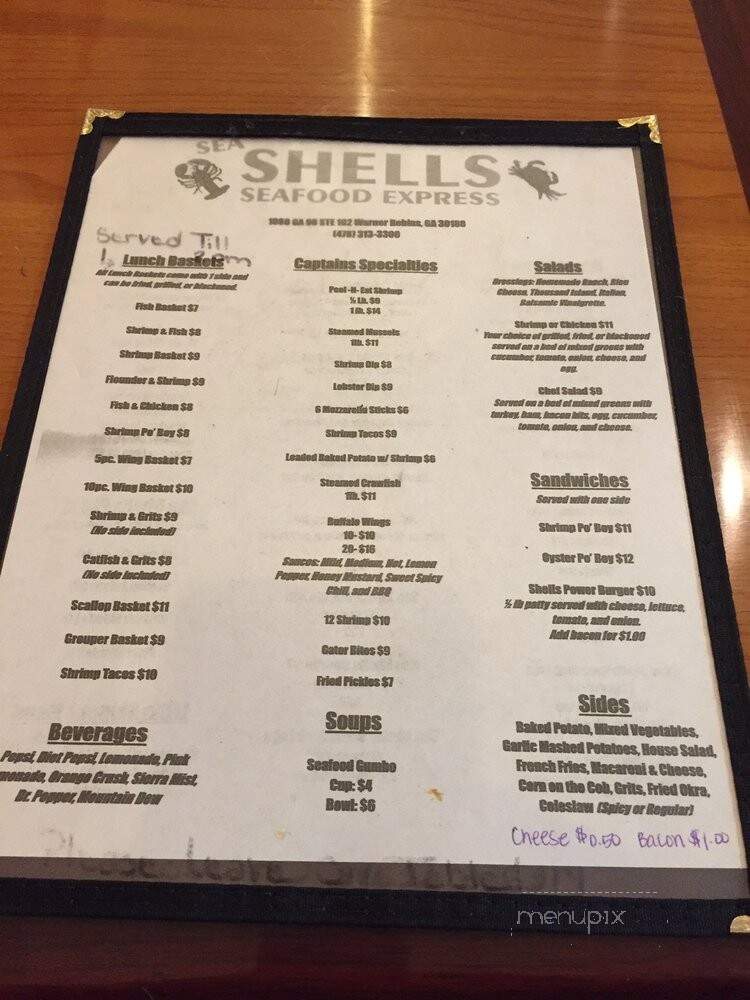 SEA
SHELLS
SEAFOOD EXPRESS
1080 GA 96 STE 102 Warner Robins, GA 30188
(478) 313-3308
Served Till
Lunch Baskets
All Lunch Baskets come with 1 side and
can be fried, grilled, or blackened.
Fish Basket $7
Shrimp & Fish $8
Shrimp Basket $9
Flounder & Shrimp $9
Fish & Chicken $8
Shrimp Po' Boy $8
5pc. Wing Basket $7
10pc. Wing Basket $10
Shrimp & Grits $9
(No side included)
Catfish & Grits $8
(No side included)
Scallop Basket $11
Grouper Basket $9
Shrimp Tacos $10
Beverages
Pepsi, Diet Pepsi, Lemonade, Pink
monade, Orange Crush, Sierra Mist,
Dr. Pepper, Mountain Dew
Captains Specialties
Peel -N- Eat Shrimp
½ Lb. $9
1 lb. $14
Steamed Mussels
1lb. $11
Shrimp Dip $8
Lobster Dip $9
6 Mozzarella Sticks $6
Shrimp Tacos $9
Loaded Baked Potato w/ Shrimp $6
Steamed Crawfish
1lb. $11
Buffalo Wings
10- $10
20- $16
Sauces: Mild, Medium, Hot, Lemon
Pepper, Honey Mustard, Sweet Spicy
Chili, and BBQ
12 Shrimp $10
Gator Bites $9
Fried Pickles $7
Soups
Seafood Gumbo
Cup: $4
Bowl: $6
Salads
Dressings: Homemade Ranch, Bleu
Cheese, Thousand Island, Italian,
Balsamic Vinaigrette.
Shrimp or Chicken $11
Your choice of grilled, fried, or blackened
served on a bed of mixed greens with
cucumber, tomato, onion, cheese, and
egg.
Chef Salad $9
Served on a bed of mixed greens with
turkey, ham, bacon bits, egg, cucumber,
tomato, onion, and cheese.
Sandwiches
Served with one side
Shrimp Po' Boy $11
Oyster Po' Boy $12
Shells Power Burger $10
½ lb patty served with cheese, lettuce,
tomato, and onion.
Add bacon for $1.00
Sides
Baked Potato, Mixed Vegetables,
Garlic Mashed Potatoes, House Salad,
French Fries, Macaroni & Cheese,
Corn on the Cob, Grits, Fried Okra,
Coleslaw (Spicy or Regular)
Cheese $0.50 Bacon $1.00
Please Leave on
menupix